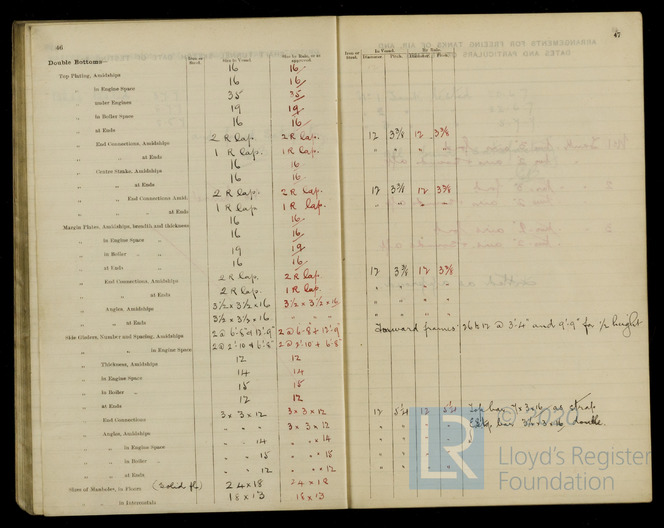 46
Double Bottoms—
Iron or Steel.
Size in Vessel.
Size by Rule, or as approved.
Top Plating, Amidships 16 16
„ in Engine Space 16 16
„ under Engines 35 35
„ in Boiler Space 19 19
„ at Ends 16 16
End Connections, Amidships 2 R lap. 2 R lap.
„ „ at Ends 1 R lap. 1 R lap.
Centre Strake, Amidships 16 16
„ „ at Ends 16 16
„ „ End Connections Amid. 2 R lap. 2 R lap.
„ „ „ at Ends 1 R lap. 1 R lap.
Margin Plates, Amidships, breadth and thickness 16 16
„ in Engine Space 16 16
„ in Boiler „ 19 19
„ at Ends „ 16 16
End Connections, Amidships 2 R lap. 2 R lap.
„ „ at Ends 2 R lap. 1 R lap.
Angles, Amidships 3½ x 3½ x 16 3½ x 3½ x 16
„ at Ends 3½ x 3½ x 16 „ „ „
Side Girders, Number and Spacing, Amidships 2 @ 6'·8" & 13'·9" 2 @ 6'·8" & 13'·9"
„ „ in Engine Space 2 @ 2'·10" & 6'·8" 2 @ 2'·10" & 6'·8"
Thickness, Amidships 12 12
„ in Engine Space 14 14
„ in Boiler „ 15 15
„ at Ends 12 12
End Connections 3 x 3 x 12 3 x 3 x 12
Angles, Amidships „ „ „ 3 x 3 x 12
„ in Engine Space „ „ 14 „ „ 14
„ in Boiler „ „ „ 15 „ „ 15
„ at Ends „ „ 12 „ „ 12
Sizes of Manholes, in Floors (Solid fls) 24 x 18 24 x 18
„ „ in Intercostals 18 x 13 18 x 13
47
Iron or Steel.
In Vessel.
By Rule.
Diameter. Pitch. Diameter. Pitch.
12 3⅜ 12 3⅜
„ „ „ „
12 3⅜ 12 3⅜
„ „ „ „
12 3⅜ 12 3⅜
„ „ „ „
„ „ „ „
„ „ „ „
Forward frames 26 to 12 @ 3'·4" and 9'·9" for ½ height
12 5¼ 12 5¼ Top bar 7 x 3 x 16 as strap
„ „ „ „ bar 3½ x 3 x 16 double.
„ „ „ „
„ „ „ „
„ „ „ „
LR
© 2020
Lloyd's Register
Foundation